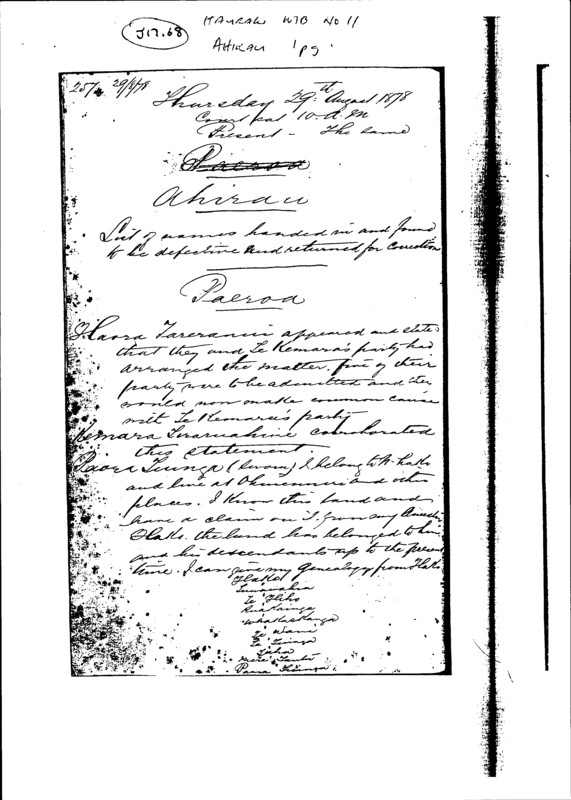 J17.68
HAURAKI MB No 11
AHIRAU 1 pg.
257. 29/8/78
Thursday 29th August 1878
Court sat 10 A.M
Present - The same
Paeroa
Ahirau
List of names handed in and found
to be defective and returned for correction
Paeroa
Haora Tareranui appeared and state
that they and Te Kemara's party had
arranged the matter. five of their
party were to be admitted and they
would now make common cause
with Te Kemara's party
Kemara corroborated
this statement
Paora Tiunga (Sworn) I belong to
and live at Ohinemuri and other
places. I know this land and
have a claim on it from my
the land has belonged to him
and his descendants up to the present
time. I can give my genealogy from
Te
Te
Te
Mere
Paora Tiunga